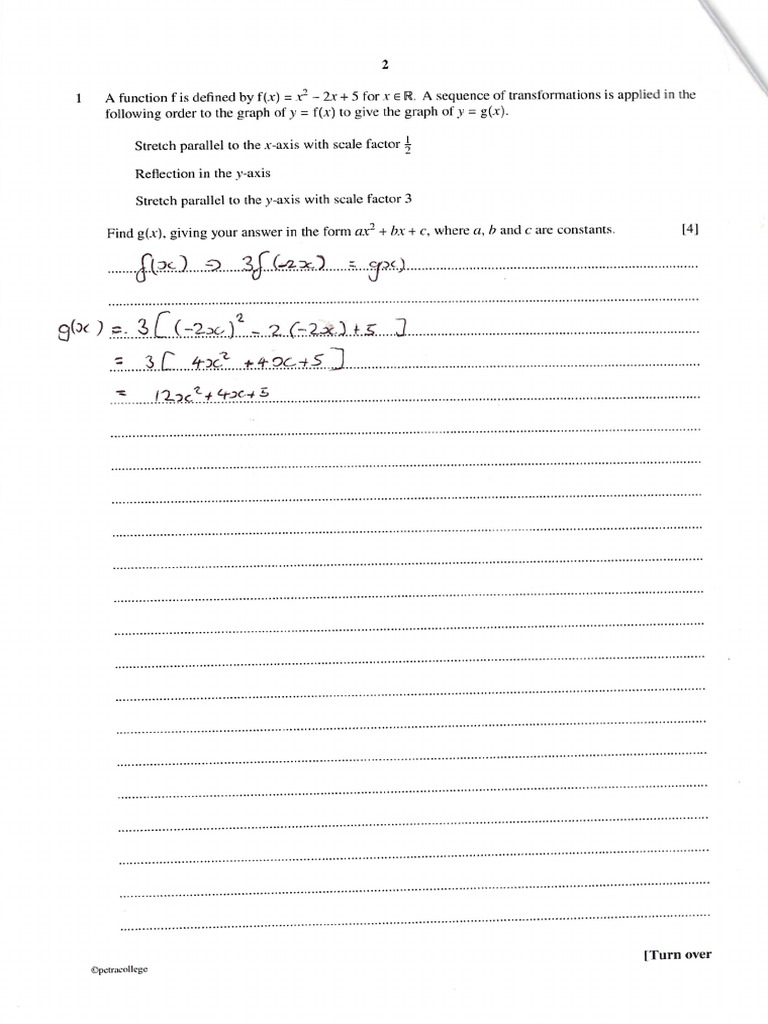 2
1 A function f is defined by f(x) = x² − 2x + 5 for x ∈ ℝ. A sequence of transformations is applied in the
following order to the graph of y = f(x) to give the graph of y = g(x).
Stretch parallel to the x-axis with scale factor ½
Reflection in the y-axis
Stretch parallel to the y-axis with scale factor 3
Find g(x), giving your answer in the form ax² + bx + c, where a, b and c are constants. [4]
f(x) ⇒ 3f(-2x) = g(x)
g(x) = 3[(-2x)² - 2(-2x)+5 ]
= 3[ 4x² +4x+5]
= 12x²+4x+5
[Turn over
©petracollege